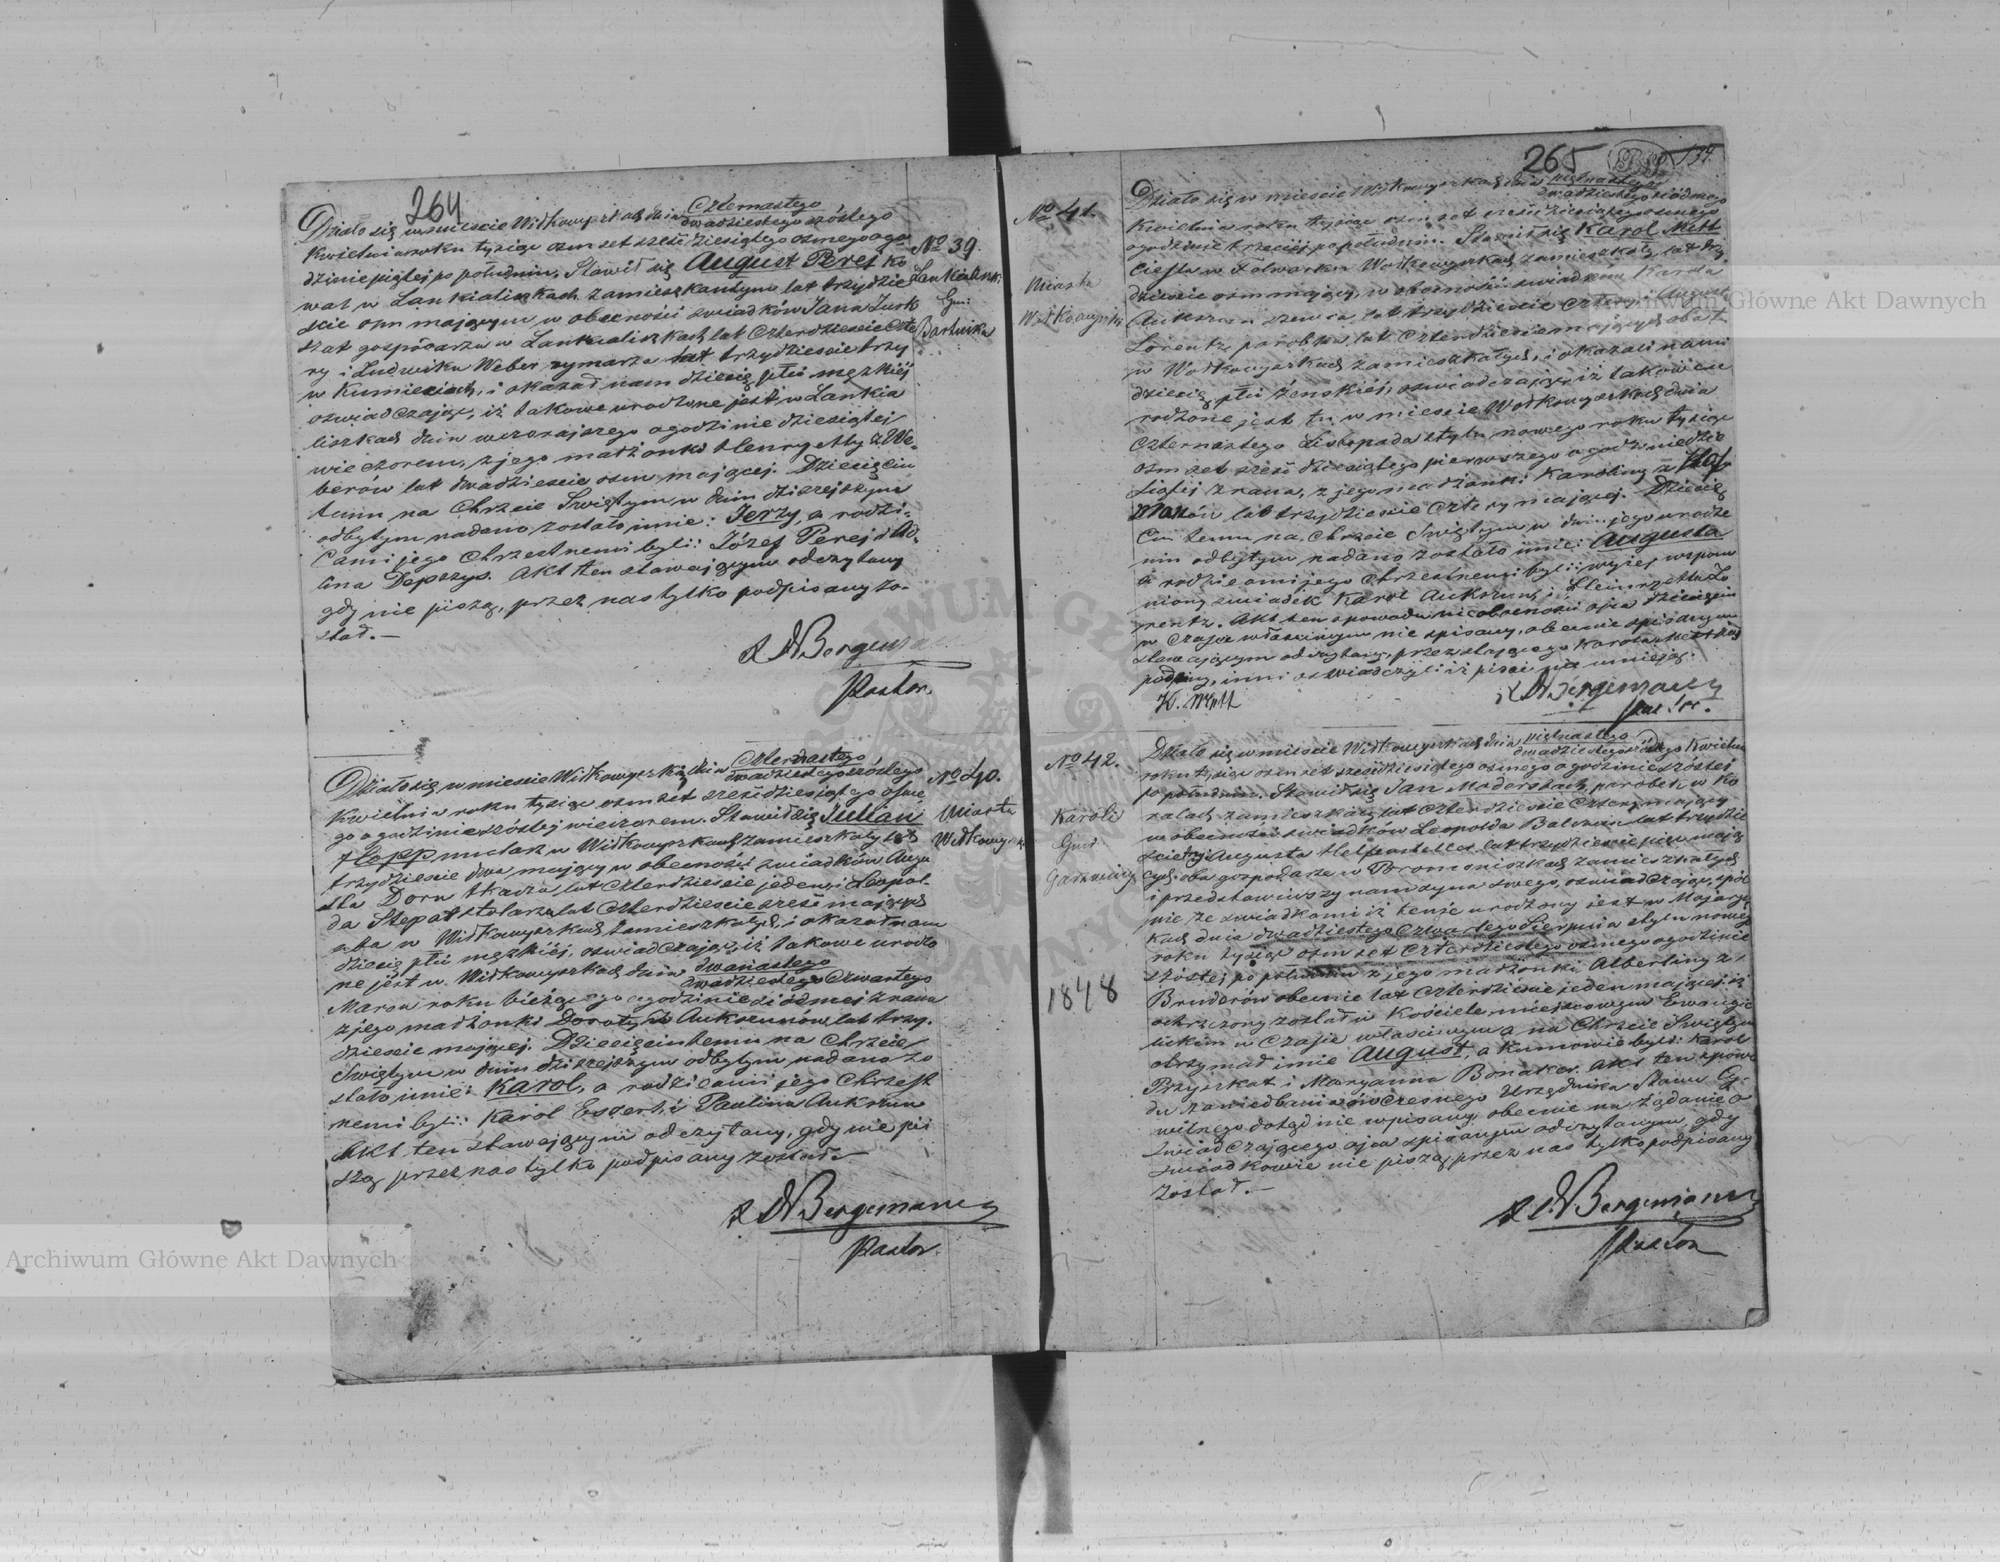 264
Działo się w mieście Wiłkowyszkach dnia Czternastego
dwudziestego szóstego
Kwietnia roku tysiąc osmset sześćdziesiątego osmego ogo
dzinie piątej po południu. Stawił się August Perej ko
wal w Lankieliszkach zamieszkałym lat trzydzie
ście ośm mającym w obecności świadków Jana Jurk
szat gospodarza w Lankieliszkach lat Czterdzieście czte
ry i Ludwika Weber rymarza lat trzydzieście trzy
w Kumieciach, i okazał nam dziecię płci męzkiéj
oświadczając, iż takowe urodzone jest w Lankie
liszkach dnia wczorajszego o godzinie dziesiątej
wieczorem, z jego małżonki Henryetty z We-
berów lat dwadzieście osm mającej. Dziecięciu
temu na Chrzcie Świętym w dniu dzisiejszym
odbytym nadano zostało imie: Jerzy, a rodzi-
cami jego Chrzestnemi byli: Józef Perej i
lina Depszys. Akt ten stawającym odczytany
gdy nie piszą, przez nas tylko podpisany zo-
stał.—
Bergemann
Pastor.
No 39.
Lankieliszki
Gm:
Bartniki
Działo się w mieście Wiłkowyszkach dnia Czternastego
dwudziestego szóstego
Kwietnia roku tysiąc osmset sześćdziesiątego osme
go o godzinie szóstej wieczorem. Stawił się Julian
Hopp mularz w Wiłkowyszkach zamieszkały lat
trzydzieście dwa mający w obecności świadków Augu
sta Dorn tkacza lat czterdzieście jeden i Leopol-
da Stepat stolarza lat czterdzieście sześć mających
oba w Wiłkowyszkach zamieszkałych, i okazał nam
dziecię płci męzkiéj, oświadczając, iż takowe urodzo
ne jest w Wiłkowyszkach dnia dwunastego
dwudziestego czwartego
Marca roku bieżącego o godzinie siódmej z rana
z jego małżonki Doroty z Aukszunów lat trzy-
dzieście mającej. Dziecięciu temu na Chrzcie
Świętym w dniu dzisiejszym odbytym nadano zo
stało imie: Karol, a rodzicami jego Chrzest
nemi byli: Karol Eggert i Paulina Aukszun
Akt ten stawającymi odczytany, gdy nie pi
szą przez nas tylko podpisany został.—
Bergemann
Pastor.
No 40.
Miasto
Wiłkowyszki
265
134.
No 41.
Miasto
Wiłkowyszki
Działo się w mieście Wiłkowyszkach dnia piętnastego
dwudziestego siódmego
Kwietnia roku tysiąc osmset sześćdziesiątego osmego
o godzinie trzeciej po południu. Stawił się Karol Mett
cieśla w Folwarku Wołkowyszkach zamieszkały lat trzy
dzieście osm mający, w obecności świadków Karola
Aukszun szewca lat trzydzieście cztery i August
Lorentz parobka lat czterdzieście mających oba
w Wołkowyszkach zamieszkałych, i okazali nam
dziecię płci żeńskiéj, oświadczając iż takowe u
rodzone jest tu w mieście Wołkowyszkach dnia
czternastego Listopada stylu nowego roku tysiąc
osmset sześćdziesiątego pierwszego o godzinie dzie
siątej z rana, z jego małżonki Karoliny z
lat trzydzieście cztery mającej. Dziecię
ciu temu na Chrzcie Świętym w dniu jego urodze
nia odbytym nadano zostało imie: Augusta
a rodzicami jego chrzestnemi byli: wyżej wspom
niony świadek Karol Aukszun i Henryetta Lo
rentz. Akt ten z powodu nieobecności ojca dziecięcia
w czasie właściwym nie spisany, obecnie spisanym
stawającym odczytany, przez stającego Karola Mett
podpisany, inni oświadczyli iż pisać nie umieją.
K. Mett
Bergemann
Pastor.
No 42.
Karóli
Gmi:
1848
Działo się w mieście Wiłkowyszkach dnia piętnastego
dwudziestego siódmego Kwietnia
roku tysiąc osmset sześćdziesiątego osmego o godzinie szóstej
po południu. Stawił się Jan Maderstach parobek w Ka
ralach zamieszkały lat czterdzieście cztery mający
w obecności świadków Leopolda Balczun lat trzydzie
ście trzy Augusta Helfenstella lat trzydzieście pięć mają
cych oba gospodarze w Poromoniszkach zamieszkałych
i przedstawiwszy nam syna swego, oświadczając spół
nie ze świadkami iż tenże urodzony jest w
kach dnia dwudziestego czwartego Sierpnia stylu nowego
roku tysiąc osmset czterdziestego osmego o godzinie
szóstej po południu z jego małżonki Albertiny z
Bruderów obecnie lat czterdzieście jeden mającej iż
ochrzczony został w Kościele miejscowym Ewangie
lickim w czasie właściwym a na Chrzcie Świętym
otrzymał imie August, a Kumowie byli: Karol
Przyszkat i Maryanna Bonaker. Akt ten z powo
du zaniedbania ówczesnego Urzędnika Stanu Cy-
wilnego dotąd nie wpisany, obecnie na żądanie o
świadczającego ojca spisanym odczytanym, gdy
świadkowie nie piszą, przez nas tylko podpisany
został.—
Bergemann
Pastor
Archiwum Główne Akt Dawnych
Archiwum Główne Akt Dawnych